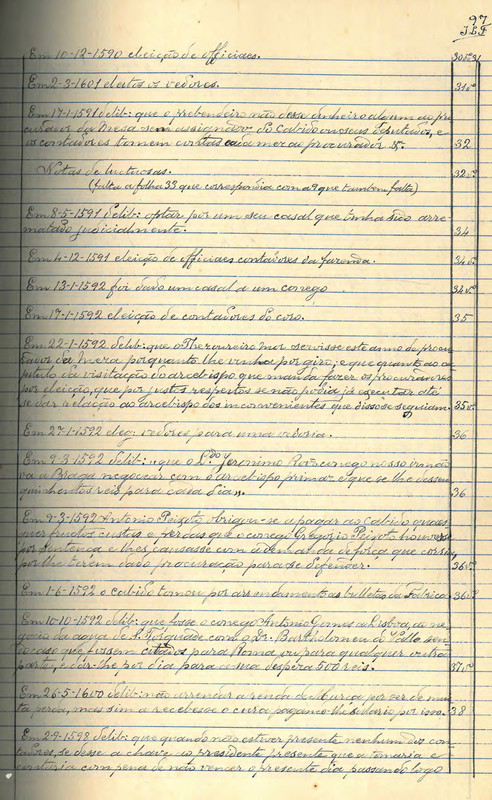 97
J.L.F
Em 10-12-1590 eleição de officiaes. 30vº-31
Em 2-3-1601 eleitos os vedores. 31vº
Em 17-1-1591 delib: que o prebendeiro não desse dinheiro algum ao pro
curador da Mesa sem assignado do Cabido ou seus deputados, e
os contadores tomem contas cada mez ao procurador &. 32
Notas de luctuosas. 32vº
(falta a folha 33 que correspondia com a 9 que tambem falta)
Em 8-5-1591 delib: optar por um seu casal que tinha sido arre-
matado judicialmente. 34
Em 4-12-1591 eleição de officiaes contadores da fazenda. 34vº
Em 13-1-1592 foi dado um casal a um conego 34vº
Em 17-1-1592 eleição de contadores do coro. 35
Em 22-1-1592 delib: que o Thezoureiro Mor servisse este anno de procu
rador da Meza porquanto lhe vinha por giro; e que quanto ao ca
pitulo da visitação do arcebispo que manda fazer os procuradores
por eleição, que por justos respeitos se não podia já executar até
se dar relação ao arcebispo dos inconvenientes que disso se seguiam. 35vº
Em 27-1-1592 eleg: vedores para uma vedoria. 36
Em 9-3-1592 delib: "que o Ldo Jeronimo Roiz conego nosso irmão
vá a Braga negocear com o arcebispo primaz e que se lhe dessem
quinhentos reis para cada dia". 36
Em 9-3-1592 Antonio Peixoto obrigou-se a pagar ao Cabido quaes-
quer fructos custas e perdas que o conego Gregorio Peixoto houvesse
por sentença e lhes causasse com a demanda da força que corria,
por lhe terem dado procuração para se defender. 36vº
Em 1-6-1592 o cabido tomou por arrendamento as bulletas da Fabrica. 36vº
Em 10-10-1592 delib: que fosse o conego Antonio Gomes a Lisboa, ao ne-
gocio da agua de S. Torquade com o Dr. Bartholomeu do Valle sen-
do caso que fossem citados para Roma, ou para qualquer outra
parte, e dar-lhe por dia para a sua despeza 500 reis. 37vº
Em 26-5-1600 delib: não arrendar a renda da Murça por ser de mui-
ta perda, mas sim a recebesse o cura pagando-lhe salario por isso. 38
Em 2-9-1598 delib: que quando não estiver presente nenhum dos con-
tadores, se desse a chave ao presidente presente que a tomaria e
contaria com pena de não vencer o presente dia passando logo